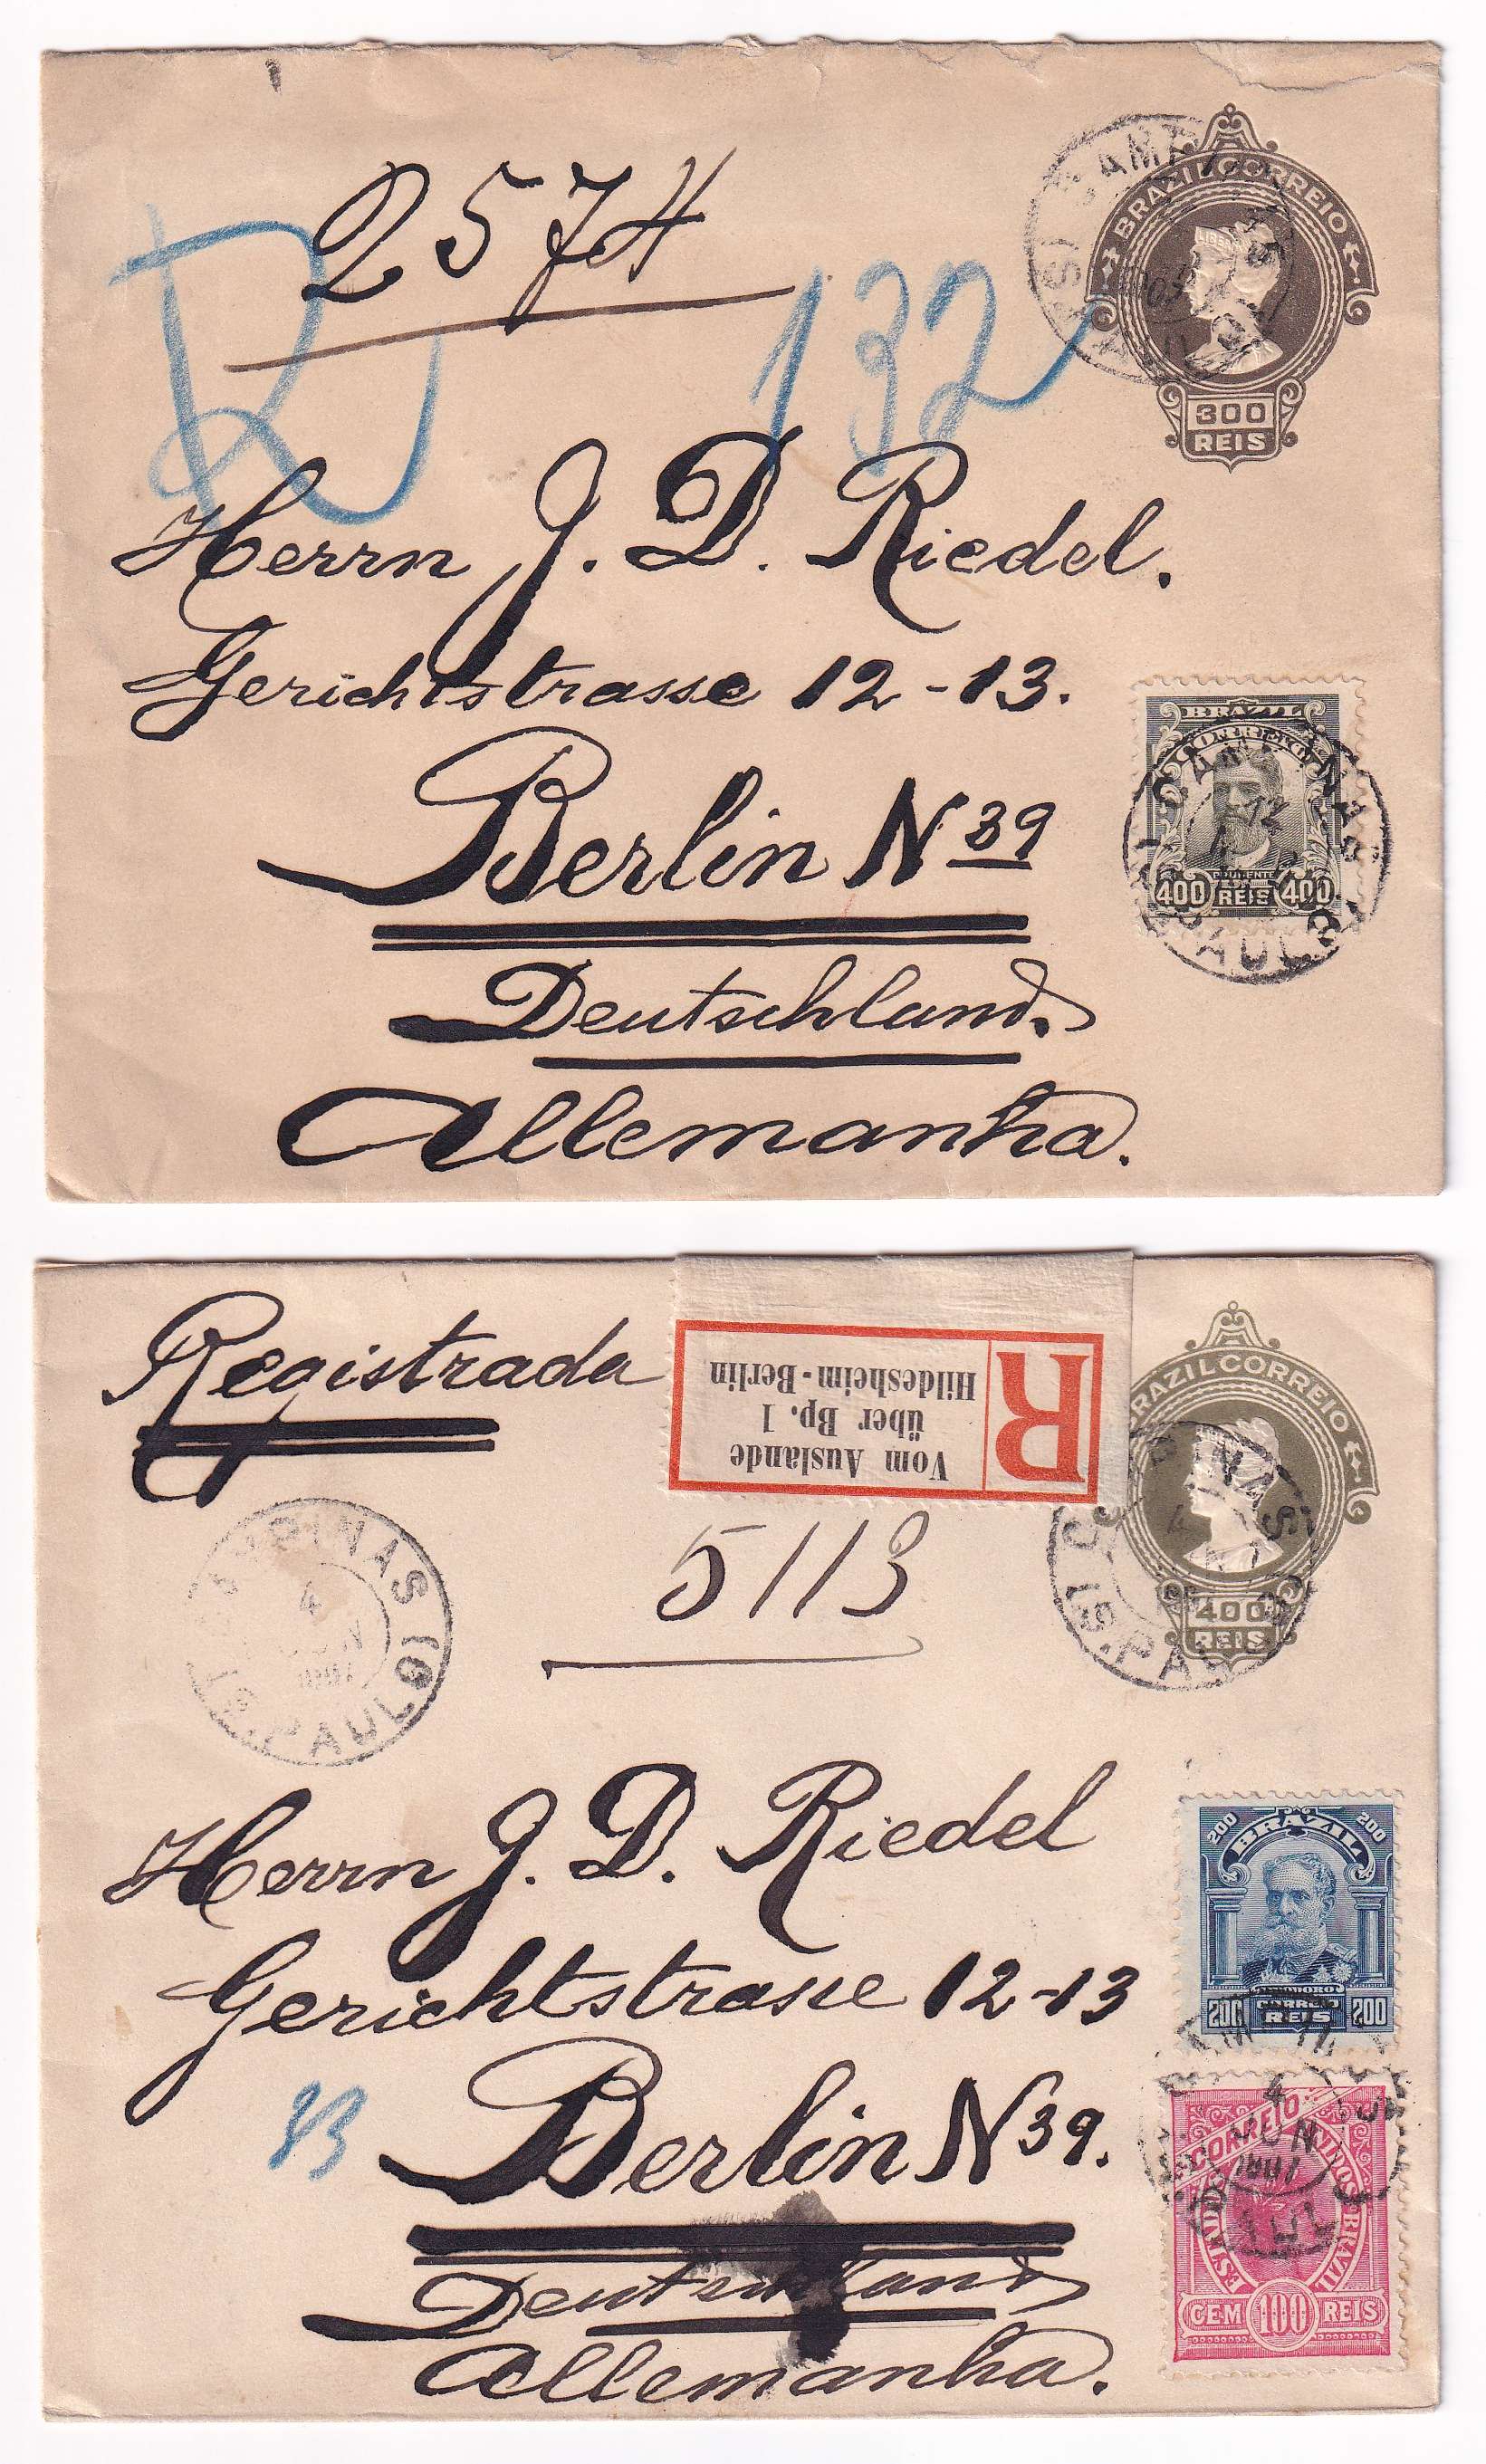 2574
R 132
BRAZIL CORREIO
300
REIS
Herrn J. D. Riedel.
Gerichtstrasse 12-13.
Berlin N 39
Deutschland.
Allemanha.
BRAZIL
CORREIO
400 REIS 400
CAMPINAS
PAULO
Registrada
R
Vom Auslande
über Bp. 1
Hildesheim-Berlin
BRAZIL CORREIO
400
REIS
5113
CAMPINAS
4
(S. PAULO)
Herrn J. D. Riedel
Gerichtstrasse 12-13
Berlin N 39.
Deutschland
Allemanha.
200 200
BRAZIL
CORREIO
200 REIS 200
4
JUN
CORREIO
CEM 100 REIS